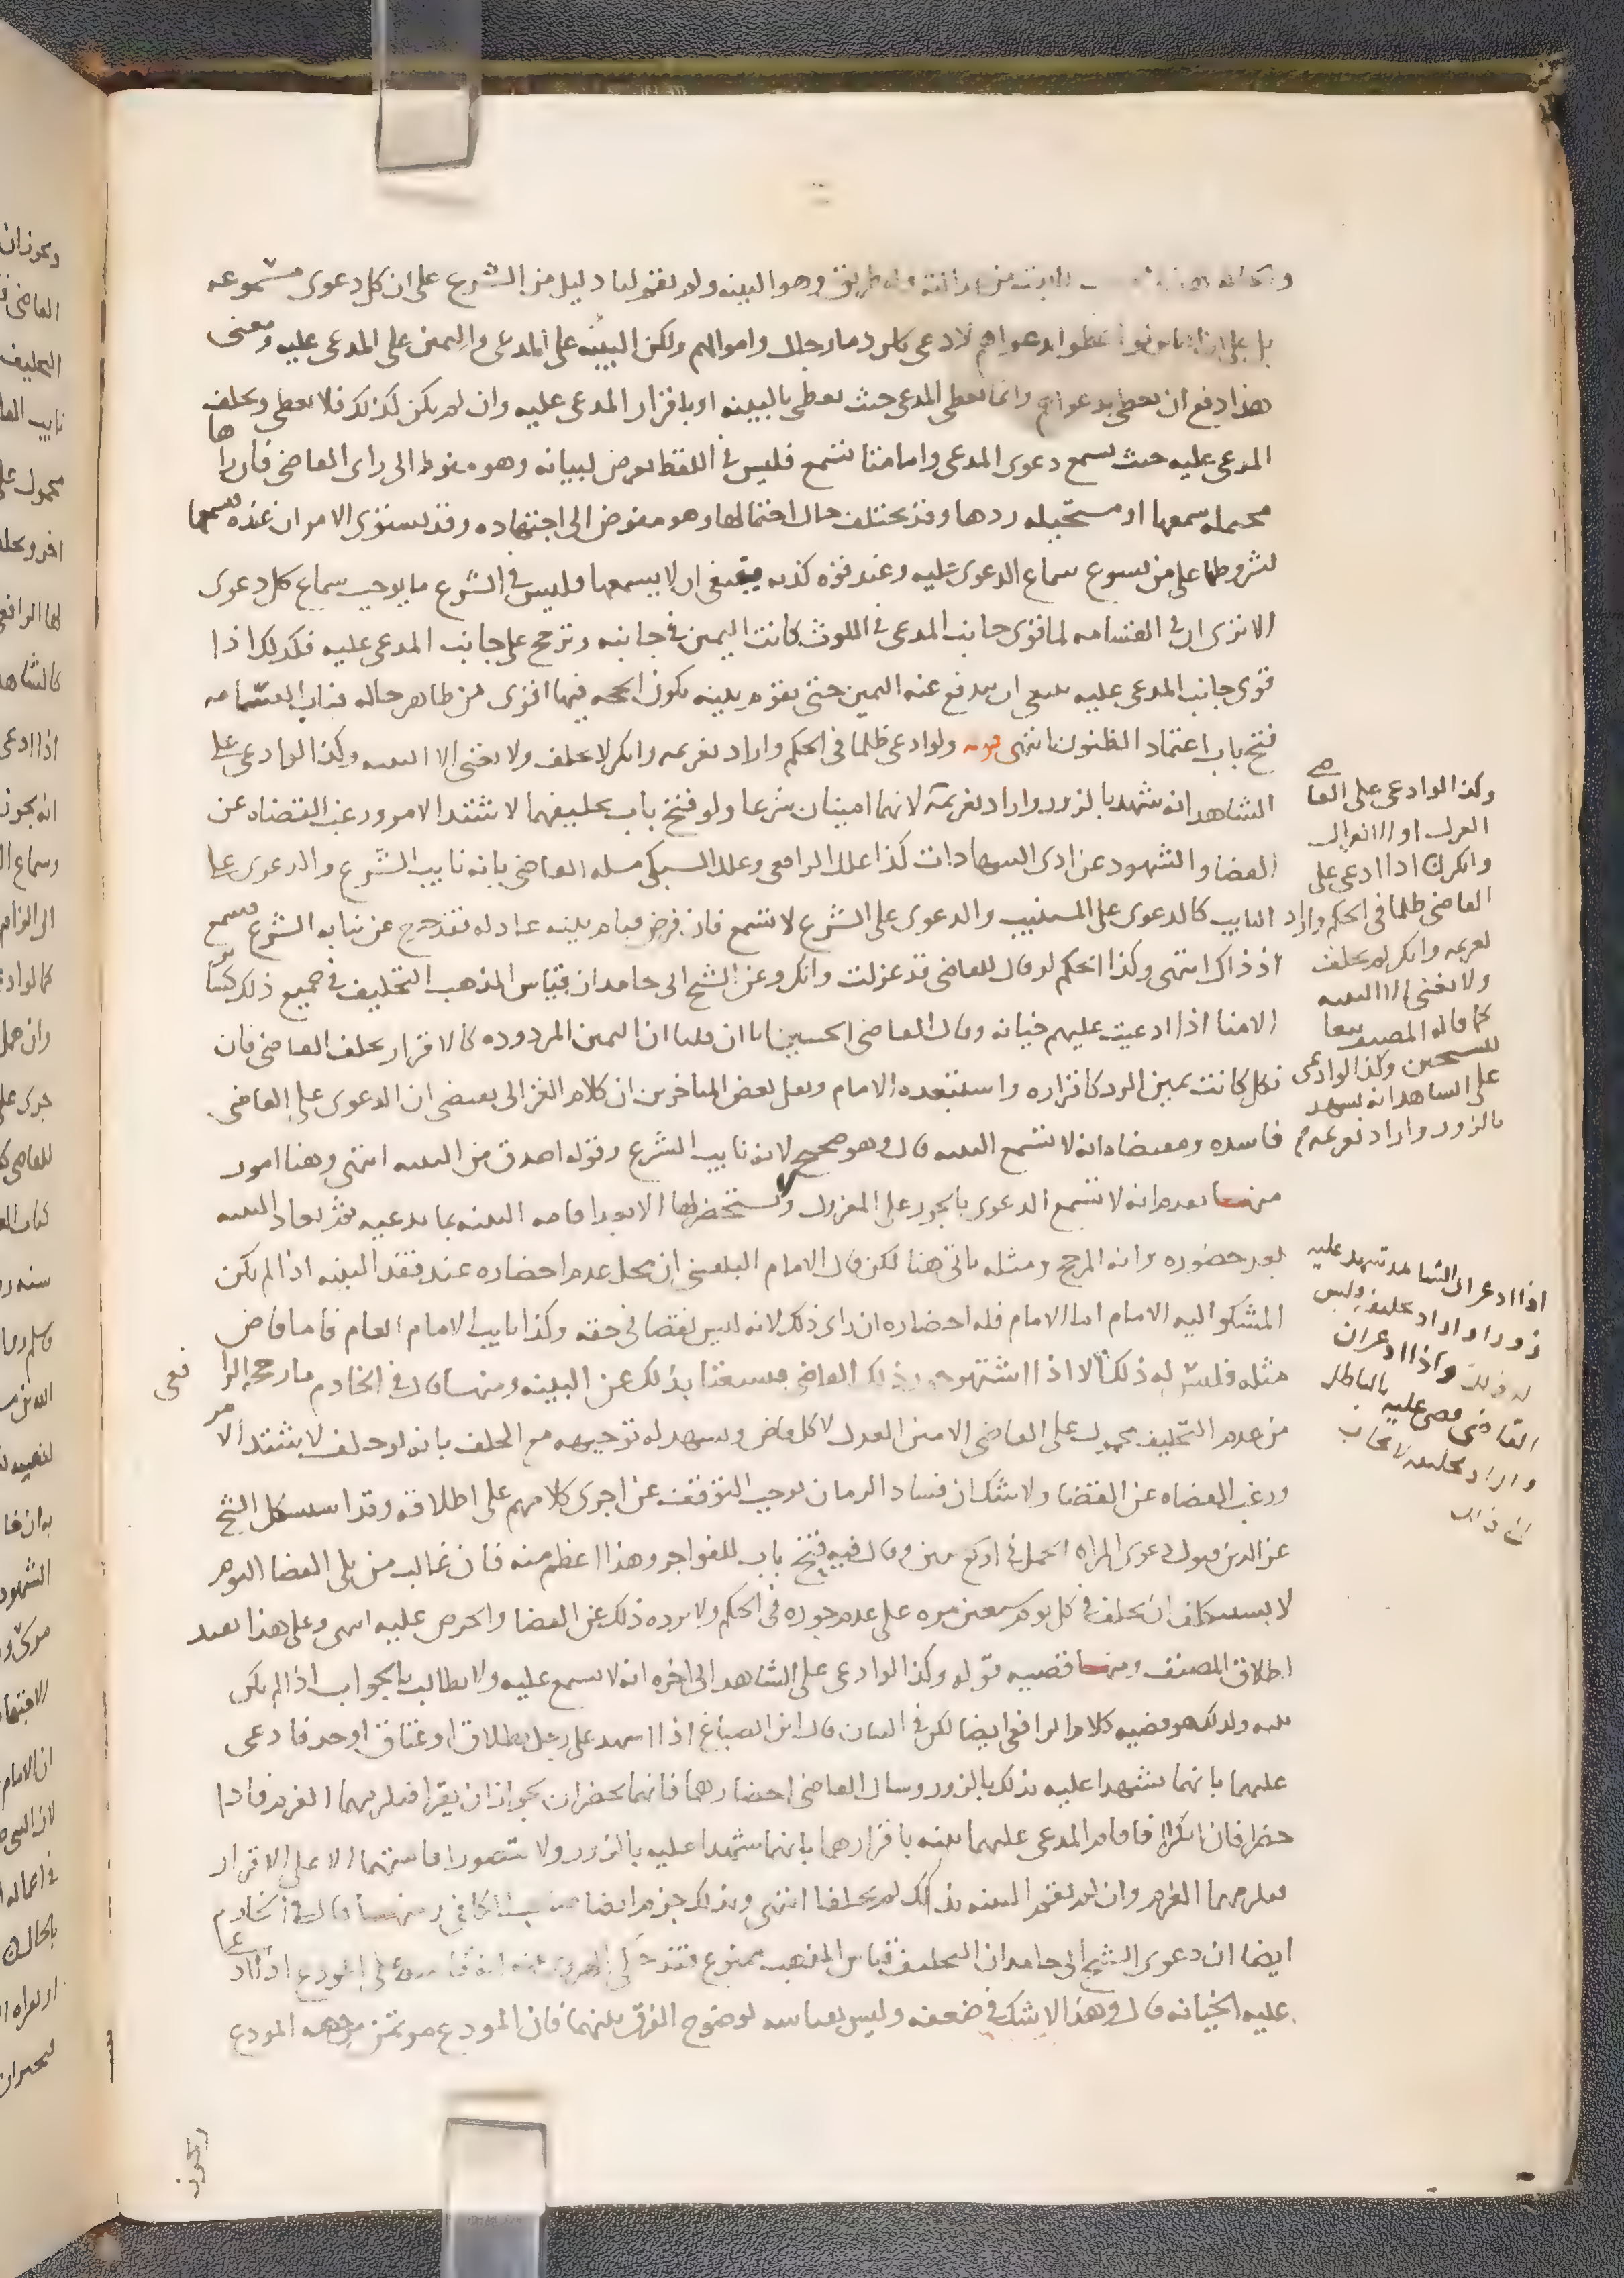 وهو البينه ولم يقم لنا دليل من الشرع على ان كل دعوى مسموعه
بل على ان الناس لو اعطوا بدعواهم لادعى ناس دما رجال واموالهم ولكن البينه على المدعى واليمين على المدعى عليه ومعنى
هذا دفع ان يعطى بدعواهم وانما يعطى المدعى حيث يعطى بالبينه او باقرار المدعى عليه وان لم يكن كذلك فلا يعطى ويحلف
المدعى عليه حيث تسمع دعوى المدعى واما متى تسمع فليس في اللفظ تعرض لبيانه وهو منوط الى راى القاضى فان راها
محتمله سمعها او مستحيله ردها وقد يختلف حال احتمالها وهو مفوض الى اجتهاده وقد يستوى الامران عنده فيسمعها
بشروطها على من يسوغ سماع الدعوى عليه وعند قوه كذبه ينبغى ان لا يسمعها وليس في الشرع ما يوجب سماع كل دعوى
الا ترى ان في القسامه لما قوى جانب المدعى في اللوث كانت اليمين في جانبه وترجح على جانب المدعى عليه فكذلك اذا
قوى جانب المدعى عليه ينبغى ان يدفع عنه اليمين حتى يقوم بينه يكون الحجه فيها اقوى من ظاهر حاله فباب القسامه
فتح باب اعتماد الظنون انتهى قوله ولو ادعى ظلما في الحكم واراد تغريمه وانكر لا يحلف ولا يغنى الا البينه وكذا لو ادعى على
الشاهد انه شهد بالزور واراد تغريمه لانهما امينان شرعا ولو فتح باب تحليفهما لاشتد الامر ورغب القضاه عن
القضا والشهود عن ادى الشهادات كذا علله الرافعى وعلل السبكى مسله القاضى بانه نايب الشرع والدعوى على
النايب كالدعوى على المستنيب والدعوى على الشرع لا تسمع فان فرض قيام بينه عادله فقد خرج عن نيابه الشرع فتسمع
اذ ذاك انتهى وكذا الحكم لو قال للقاضى قد عزلت وانكر وعن الشيخ ابى حامد ان قياس المذهب التحليف في جميع ذلك كسائر
الامنا اذا ادعيت عليهم خيانه وقال القاضى الحسين انا ان قلنا ان اليمين المردوده كالاقرار يحلف القاضى فان
نكل كانت يمين الرد كاقراره واستبعده الامام ونقل بعض المتاخرين ان كلام الغزالى يقتضى ان الدعوى على القاضى
فاسده ومقتضاه انه لا تسمع البينه قال وهو صحيح لانه نايب الشرع وقوله اصدق من البينه انتهى وهنا امور
منها تقدم انه لا تسمع الدعوى بالجور على المعزول ويستحضر لها الا بعد اقامه البينه بما يدعيه ثم تعاد البينه
بعد حضوره وانه المرجح ومثله ياتى هنا لكن قال الامام البلقينى ان محل عدم احضاره عند فقد البينه اذا لم يكن
المشكو اليه الامام اما الامام فله احضاره ان راى ذلك لانه ليس نقصا في حقه وكذا نايب الامام العام فاما قاض
مثله فليس له ذلك الا اذا اشتهر جور ذلك القاضى فيستغنا بذلك عن البينه ومنها قال في الخادم ما رجحه الرافعى
من عدم التحليف محمول على القاضى الامين العدل لا كل قاض ويشهد له توجيهه مع الحلف بانه لو حلف لاشتد الامر
ورغب القضاه عن القضا ولا شك ان فساد الزمان يوجب التوقف عن اجرى كلامهم على اطلاقه وقد استشكل الشيخ
عز الدين قبول دعوى المراه الحمل في اربع سنين وقال فيه فتح باب للفواجر وهذا اعظم منه فان غالب من يلى القضا اليوم
لا يستنكف ان يحلف في كل يوم سبعين مره على عدم جوره في الحكم ولا يرده ذلك عن القضا والحرص عليه انتهى وعلى هذا يقيد
اطلاق المصنف ومنها قضيه قوله وكذا لو ادعى على الشاهد الى اخره انه لا تسمع عليه ولا يطالب بالجواب اذا لم يكن
بينه وذلك هو قضيه كلام الرافعى ايضا لكن في البيان قال ابن الصباغ اذا شهد على رجل بطلاق او عتاق او حد فادعى
عليهما بانهما شهدا عليه بذلك بالزور وسال القاضى احضارهما فانهما يحضران لجواز ان يقرا فيلزمهما الغرم فاذا
حضرا فان انكرا فاقام المدعى عليهما بينه باقرارهما بانهما شهدا عليه بالزور ولا يتصور اقامتهما الا على الاقرار
فيلزمهما الغرم وان لم يقم البينه بذلك لم يحلفا انتهى وبذلك جزم ايضا صاحب الكافى ومنها قال في الخادم
ايضا ان دعوى الشيخ ابى حامد ان التحليف قياس المذهب ممنوع فقد حكى الهروى عنه انه قاسه على المودع اذا ادعى
عليه الخيانه قال وهذا لا شك في ضعفه وليس بقياسه لوضوح الفرق بينهما فان المودع موتمن من جهه المودع
وكذا لو ادعى على القاضى
العزل او الانعزال
وانكر اذا ادعى على
القاضى ظلما في الحكم واراد
تغريمه وانكر لم يحلف
ولا يغنى الا البينه
كما قاله المصنف تبعا
للشيخين وكذا لو ادعى
على الشاهد انه شهد
بالزور واراد تغريمه
اذا ادعى ان الشاهد شهد عليه
زورا واراد تحليفه وليس
له ذلك واذا ادعى ان
القاضى قضى عليه بالباطل
واراد تحليفه لا يجاب
الى ذلك